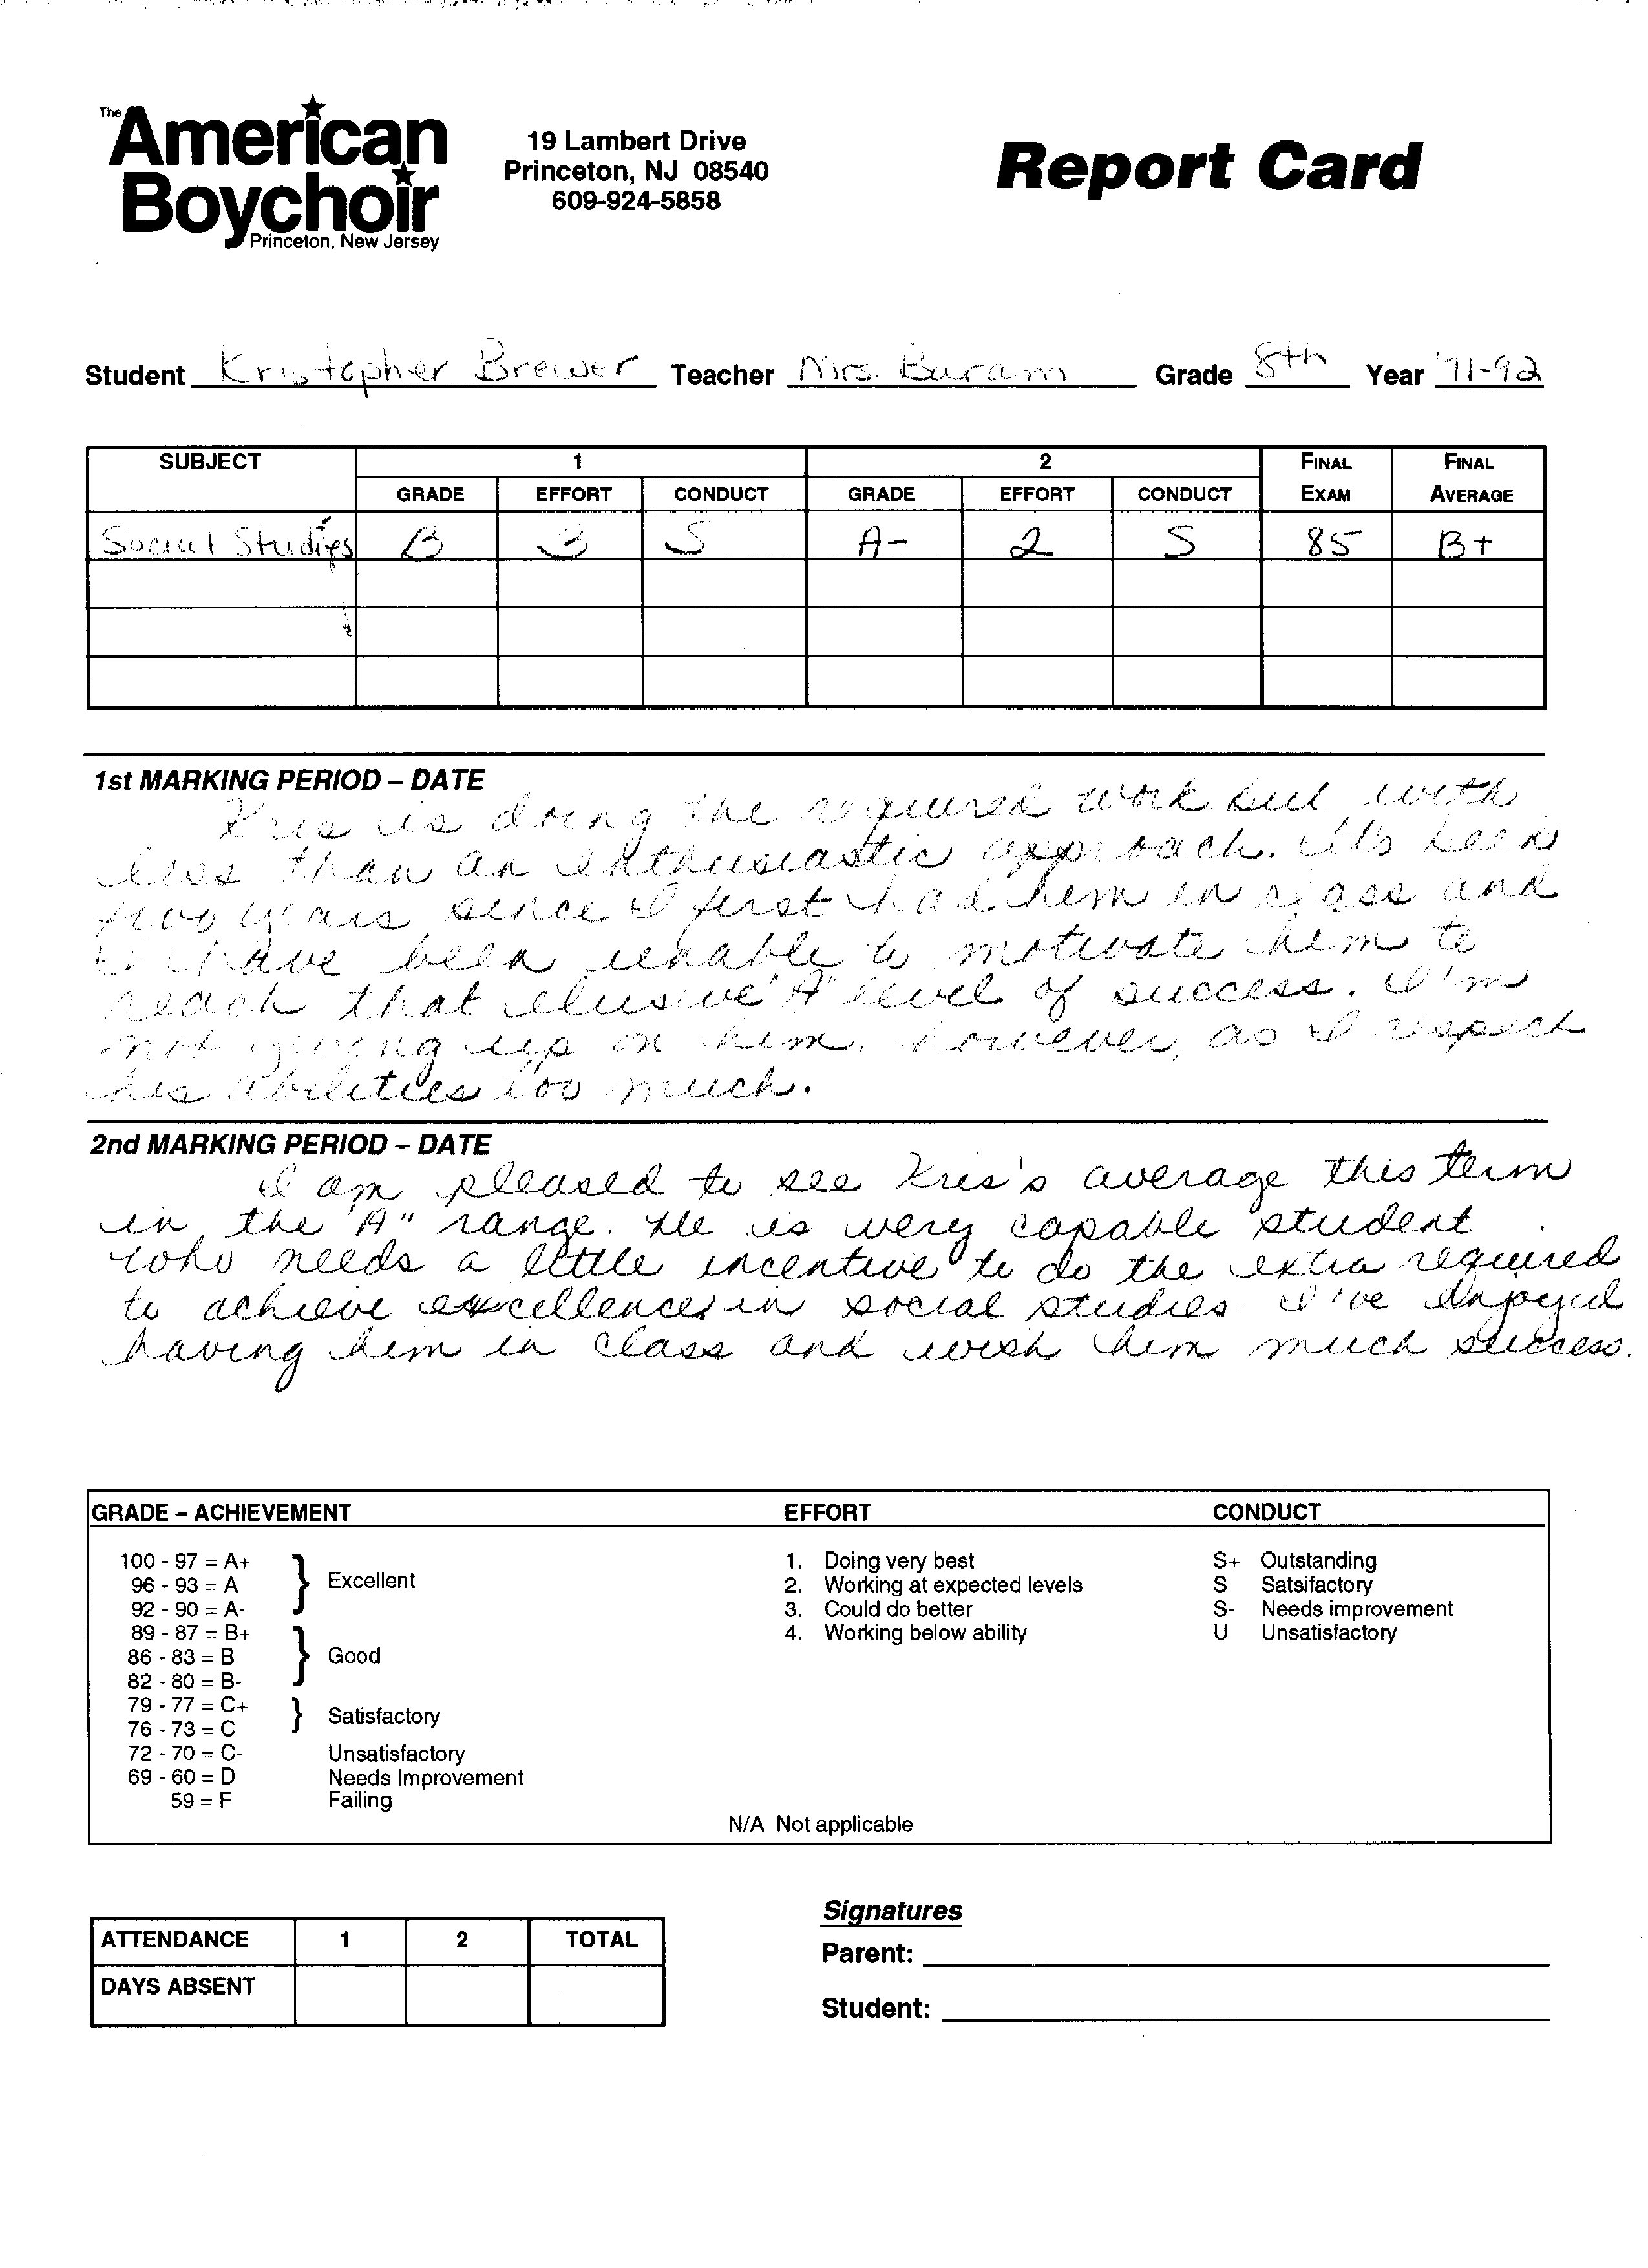 The
American
Boychoir
Princeton, New Jersey
19 Lambert Drive
Princeton, NJ 08540
609-924-5858
Report Card
Student Kristopher Brewer Teacher Mrs. Buram Grade 8th Year '91-92
SUBJECT 1 2 FINAL FINAL
GRADE EFFORT CONDUCT GRADE EFFORT CONDUCT EXAM AVERAGE
Social Studies B 3 S A- 2 S 85 B+
1st MARKING PERIOD – DATE
Kris is doing the required work but with
less than an enthusiastic approach. It's been
two years since I first had him in class and
I have been unable to motivate him to
reach that elusive "A" level of success. I'm
not giving up on him, however, as I respect
his abilities too much.
2nd MARKING PERIOD – DATE
I am pleased to see Kris's average this term
in the "A" range. He is very capable student
who needs a little incentive to do the extra required
to achieve excellence in social studies. I've enjoyed
having him in class and wish him much success.
GRADE – ACHIEVEMENT EFFORT CONDUCT
100 - 97 = A+ 1. Doing very best S+ Outstanding
96 - 93 = A Excellent 2. Working at expected levels S Satsifactory
92 - 90 = A- 3. Could do better S- Needs improvement
89 - 87 = B+ 4. Working below ability U Unsatisfactory
86 - 83 = B Good
82 - 80 = B-
79 - 77 = C+ Satisfactory
76 - 73 = C
72 - 70 = C- Unsatisfactory
69 - 60 = D Needs Improvement
59 = F Failing
N/A Not applicable
ATTENDANCE 1 2 TOTAL
DAYS ABSENT
Signatures
Parent:
Student: